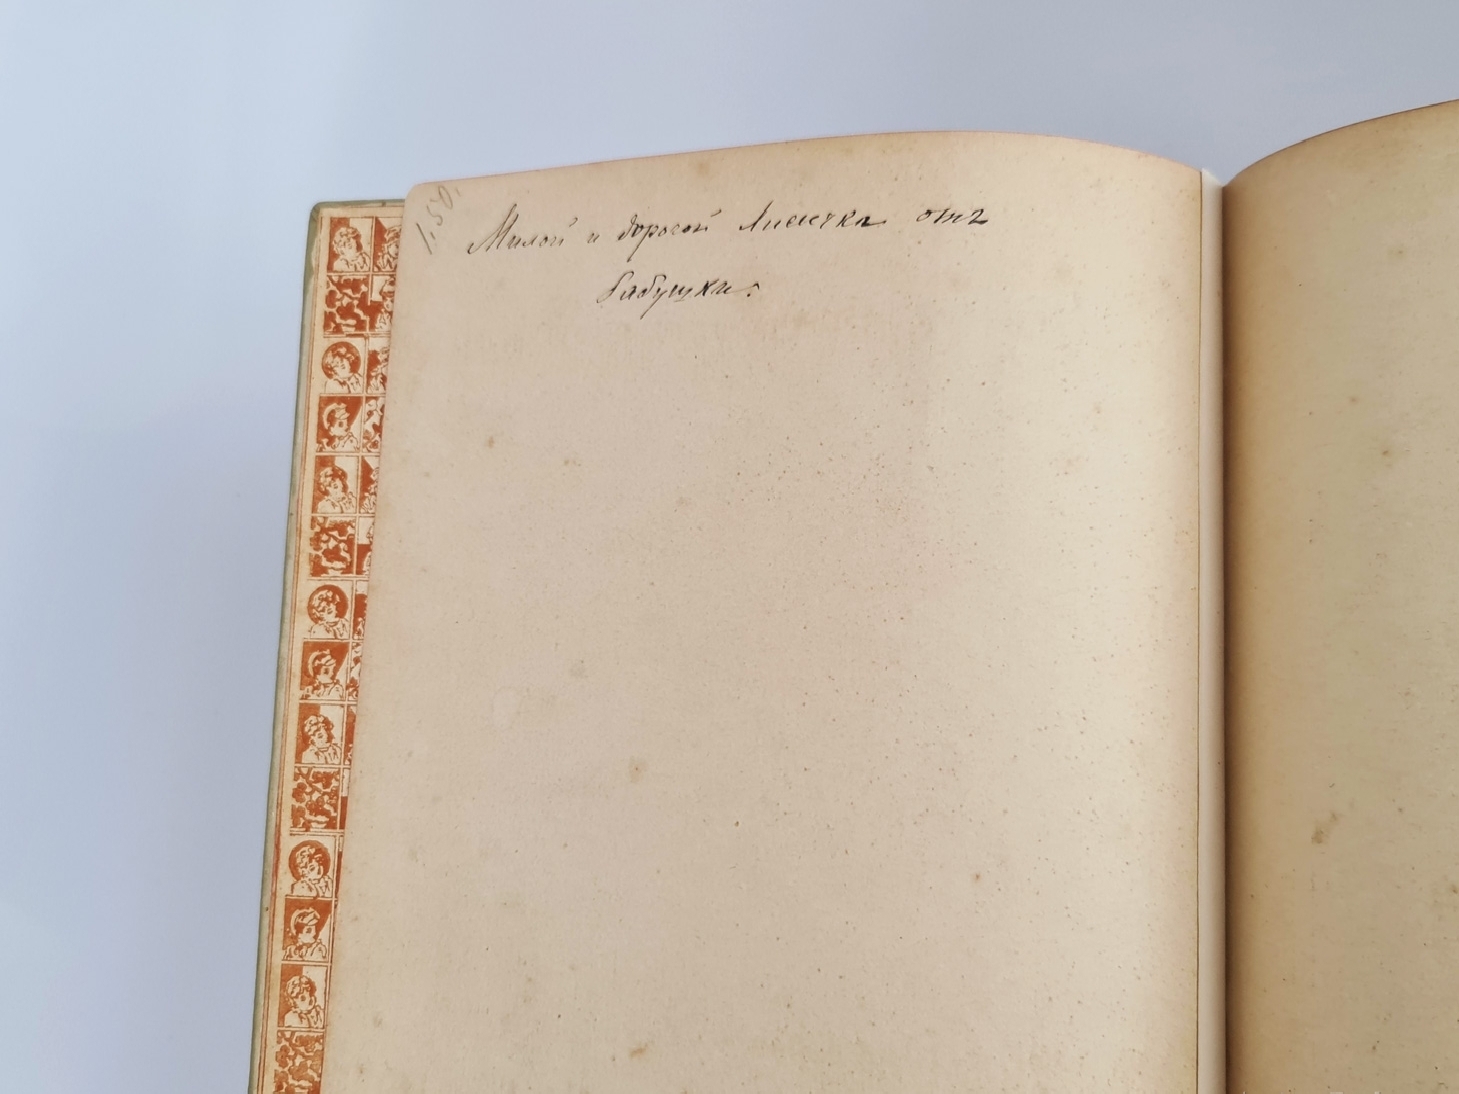 1,50.
Милой и дорогой Лисичка отъ
бабушки.